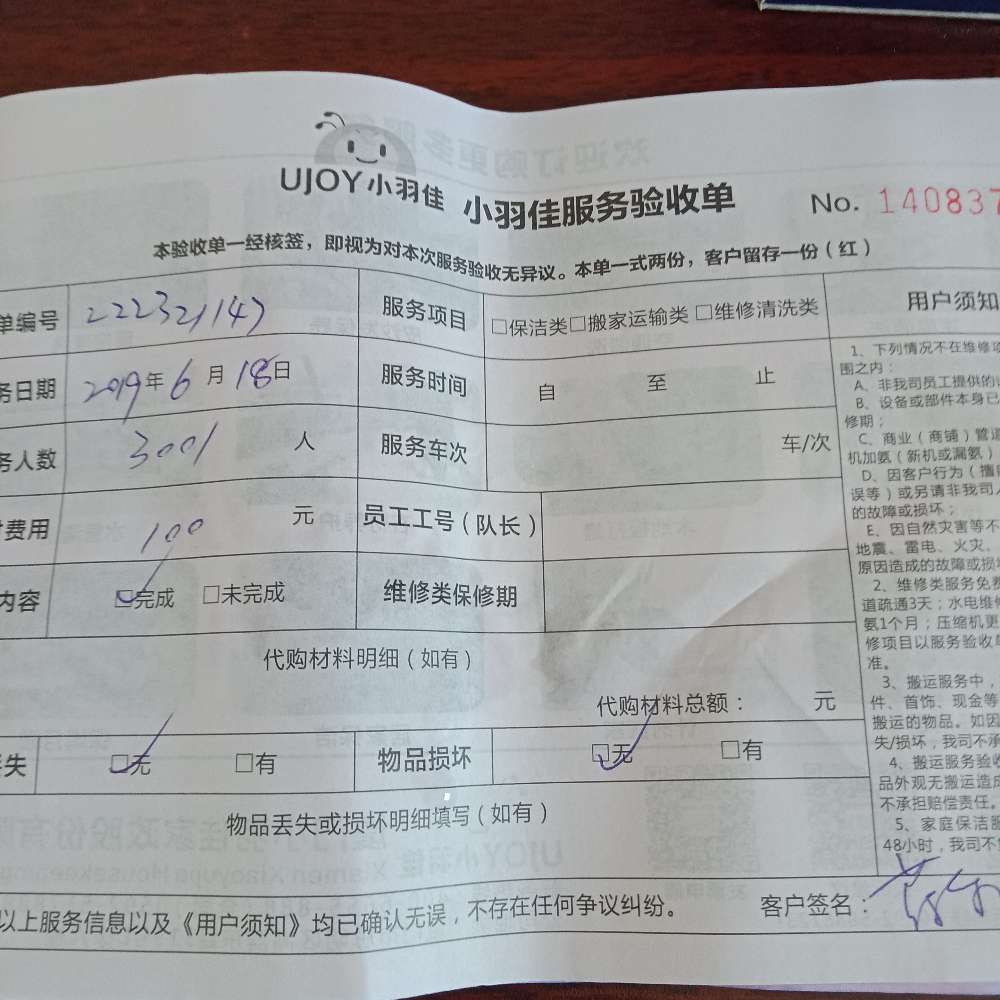 UJOY小羽佳 小羽佳服务验收单 No. 140837
本验收单一经核签，即视为对本次服务验收无异议。本单一式两份，客户留存一份（红）
单编号 222321147 服务项目 □保洁类□搬家运输类 □维修清洗类
务日期 2019年6月18日 服务时间 自 至 止
务人数 3001 人 服务车次 车/次
费用 100 元 员工工号（队长）
内容 ☑完成 □未完成 维修类保修期
代购材料明细（如有）
代购材料总额： 元
失 ☑无 □有 物品损坏 ☑无 □有
物品丢失或损坏明细填写（如有）
以上服务信息以及《用户须知》均已确认无误，不存在任何争议纠纷。 客户签名：
用户须知
1、下列情况不在维修
围之内：
A、非我司员工提供的
B、设备或部件本身已
修期；
C、商业（商铺）管道
机加氨（新机或漏氨）
D、因客户行为（擅
误等）或另请非我司
的故障或损坏；
E、因自然灾害等不
地震、雷电、火灾、
原因造成的故障或损
2、维修类服务免费
道疏通3天；水电维
氨1个月；压缩机更
修项目以服务验收
准。
3、搬运服务中，
件、首饰、现金等
搬运的物品。如因
失/损坏，我司不承
4、搬运服务验收
品外观无搬运造成
不承担赔偿责任。
5、家庭保洁服
48小时，我司不